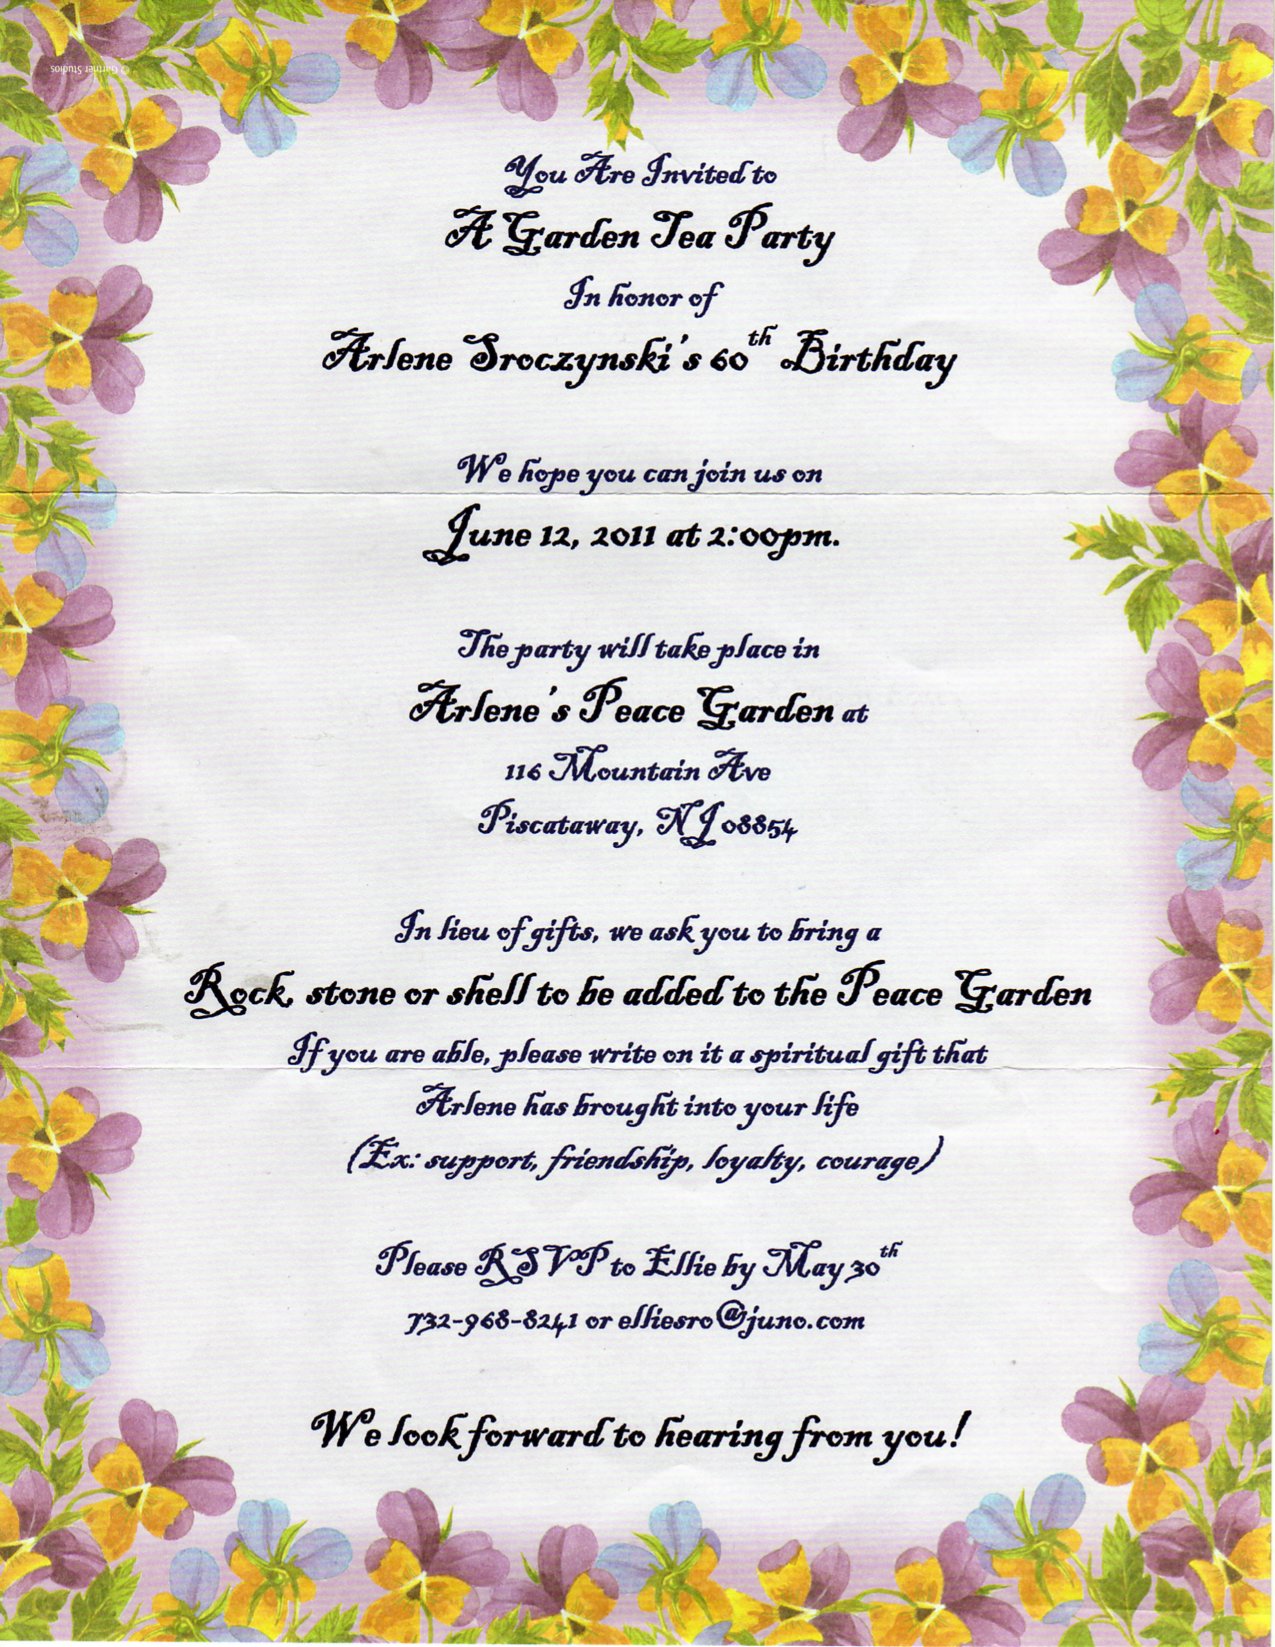 © Gartner Studios
You Are Invited to
A Garden Tea Party
In honor of
Arlene Sroczynski's 60th Birthday
We hope you can join us on
June 12, 2011 at 2:00pm.
The party will take place in
Arlene's Peace Garden at
116 Mountain Ave
Piscataway, NJ 08854
In lieu of gifts, we ask you to bring a
Rock, stone or shell to be added to the Peace Garden
If you are able, please write on it a spiritual gift that
Arlene has brought into your life
(Ex: support, friendship, loyalty, courage)
Please RSVP to Ellie by May 30th
732-968-8241 or elliesro@juno.com
We look forward to hearing from you!